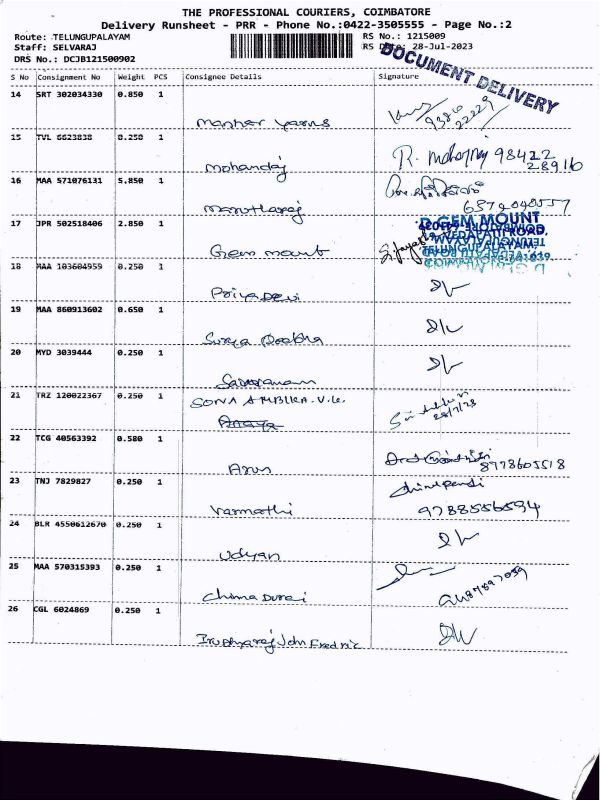 THE PROFESSIONAL COURIERS, COIMBATORE
Delivery Runsheet - PRR - Phone No.:0422-3505555 - Page No.:2
Route: TELUNGUPALAYAM
RS No.: 1215009
Staff: SELVARAJ
RS Date: 28-Jul-2023
DRS No.: DCJB121500902
DOCUMENT DELIVERY
S No Consignment No Weight PCS Consignee Details Signature
14 SRT 302034330 0.850 1
Manher yarns
9386
22229
15 TVL 6623838 0.250 1
Mohandaj
R. mohanraj 98422
28916
16 MAA 571076131 5.850 1
Maruthiaraj
6374040557
17 JPR 502518406 2.850 1
Gem mount
D GEM MOUNT
VEDAPATTI ROAD,
TELUNGUPALAYAM,
18 MAA 103604959 0.250 1
Priya Devi
19 MAA 860913602 0.650 1
Surya Prabha
20 MYD 3039444 0.250 1
21 TRZ 120022367 0.250 1
SONA AMBIKA.V.G.
Anaya
28/7/23
22 TCG 40563392 0.580 1
Arun
8778605518
23 TNJ 7829827 0.250 1
Varmathi
9788556594
24 BLR 4550612670 0.250 1
Udyan
25 MAA 570315393 0.250 1
Chinna Durai
26 CGL 6024869 0.250 1
Irudhyaraj John Fredric